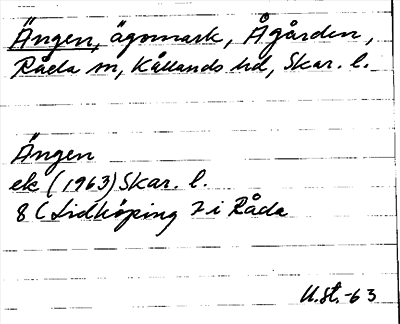 Ängen, ägomark, Ågården,
Råda sn, Kållands hd, Skar. l.
Ängen
ek (1963) Skar. l.
8 C Lidköping 7 i Råda
U.st.-63